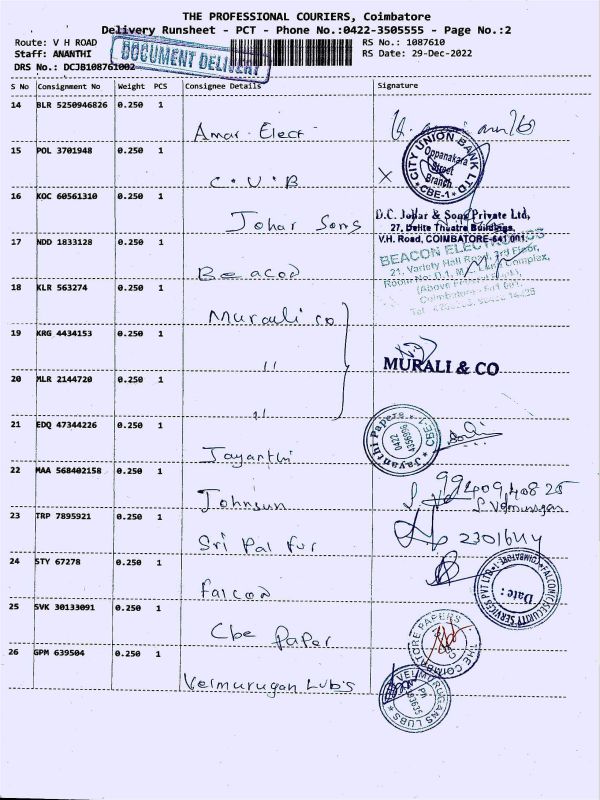 THE PROFESSIONAL COURIERS, Coimbatore
Delivery Runsheet - PCT - Phone No.:0422-3505555 - Page No.:2
Route: V H ROAD
Staff: ANANTHI
DRS No.: DCJB108761002
DOCUMENT DELIVERY
RS No.: 1087610
RS Date: 29-Dec-2022
S No Consignment No Weight PCS Consignee Details Signature
14 BLR 5250946826 0.250 1
Amar Elect
15 POL 3701948 0.250 1
C.U.B
CITY UNION BANK LTD
Oppanakara
Street
Branch
CBE-1
16 KOC 60561310 0.250 1
Johar Sons
D.C. Johar & Sons Private Ltd,
27, Delite Theatre Buildings,
V.H. Road, COIMBATORE-641 001.
17 NDD 1833128 0.250 1
Beacon
BEACON ELECTRONICS
21, Variety Hall Road, 3rd Floor,
Complex,
18 KLR 563274 0.250 1
Murauli co
19 KRG 4434153 0.250 1
11
MURALI & CO
20 MLR 2144720 0.250 1
11
21 EDQ 47344226 0.250 1
Jayanthi
Jayanthi Papers
CBE-1
0422
4356906
22 MAA 568402158 0.250 1
Johnsun
9940940825
S Velmurugan
23 TRP 7895921 0.250 1
Sri Pal fur
24 STY 67278 0.250 1
Falcon
FALCON(C)SECURITY SERVICES PVT LTD
COIMBATORE
Date:
25 SVK 30133091 0.250 1
Cbe Paper
THE COIMBATORE PAPERS
26 GPM 639504 0.250 1
Velmurugan Lubs
VELMURUGANS LUBS
PH